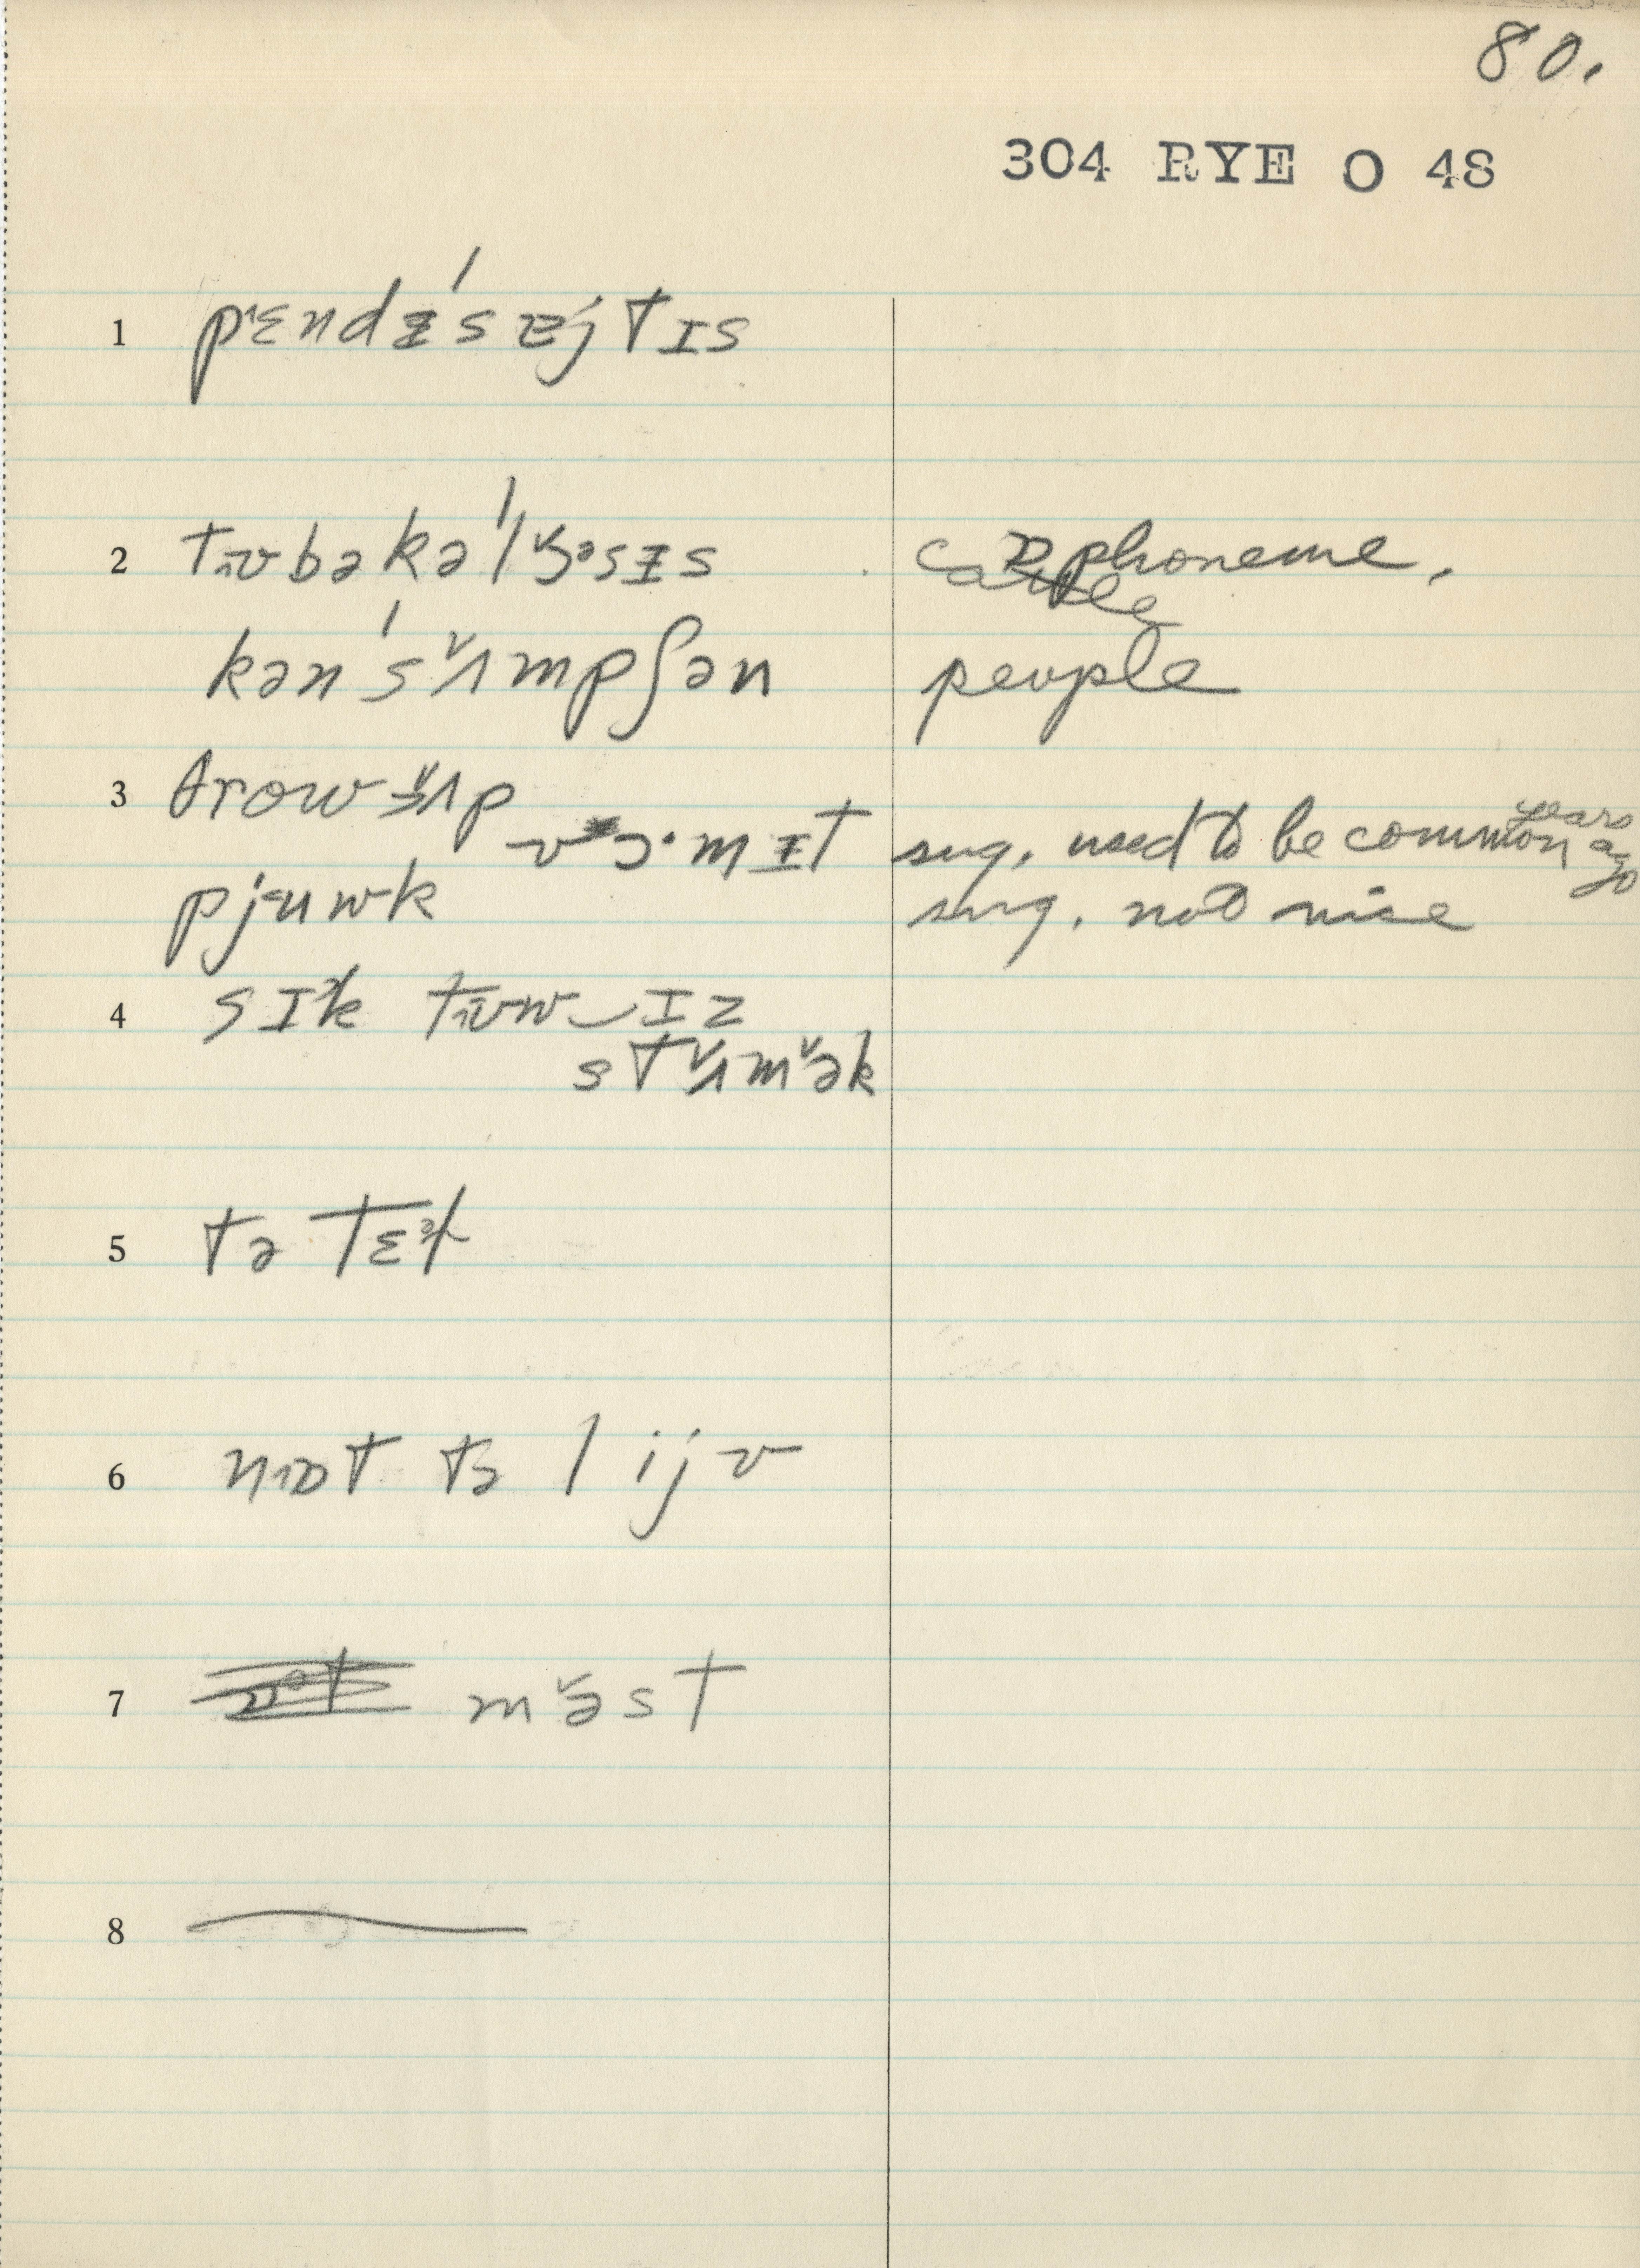 80.
304 RYE O 48
1 pɛndɨ'sɛjtɪs
2 tʊbəkə'lɜ·sɨs phoneme.
cattle
kən'sʌmpʃən people
3 θrow ʌp
vɔ·mɨt sug. used to be common years ago
pjuwk sug. not nice
4 sɪk tʊw‿ɪz
stʌmək
5 tə tɛk
6 nɒt tə lijv
7 məst
8